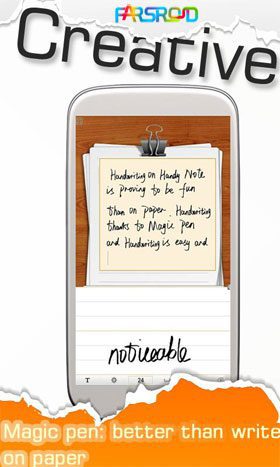 FARSROID
Creative
Handwriting on Handy Note
is proving to be fun
than on paper. Handwriting
thanks to Magic pen
and Handwriting is easy and
noticeable
T 24
Magic pen: better than write
on paper